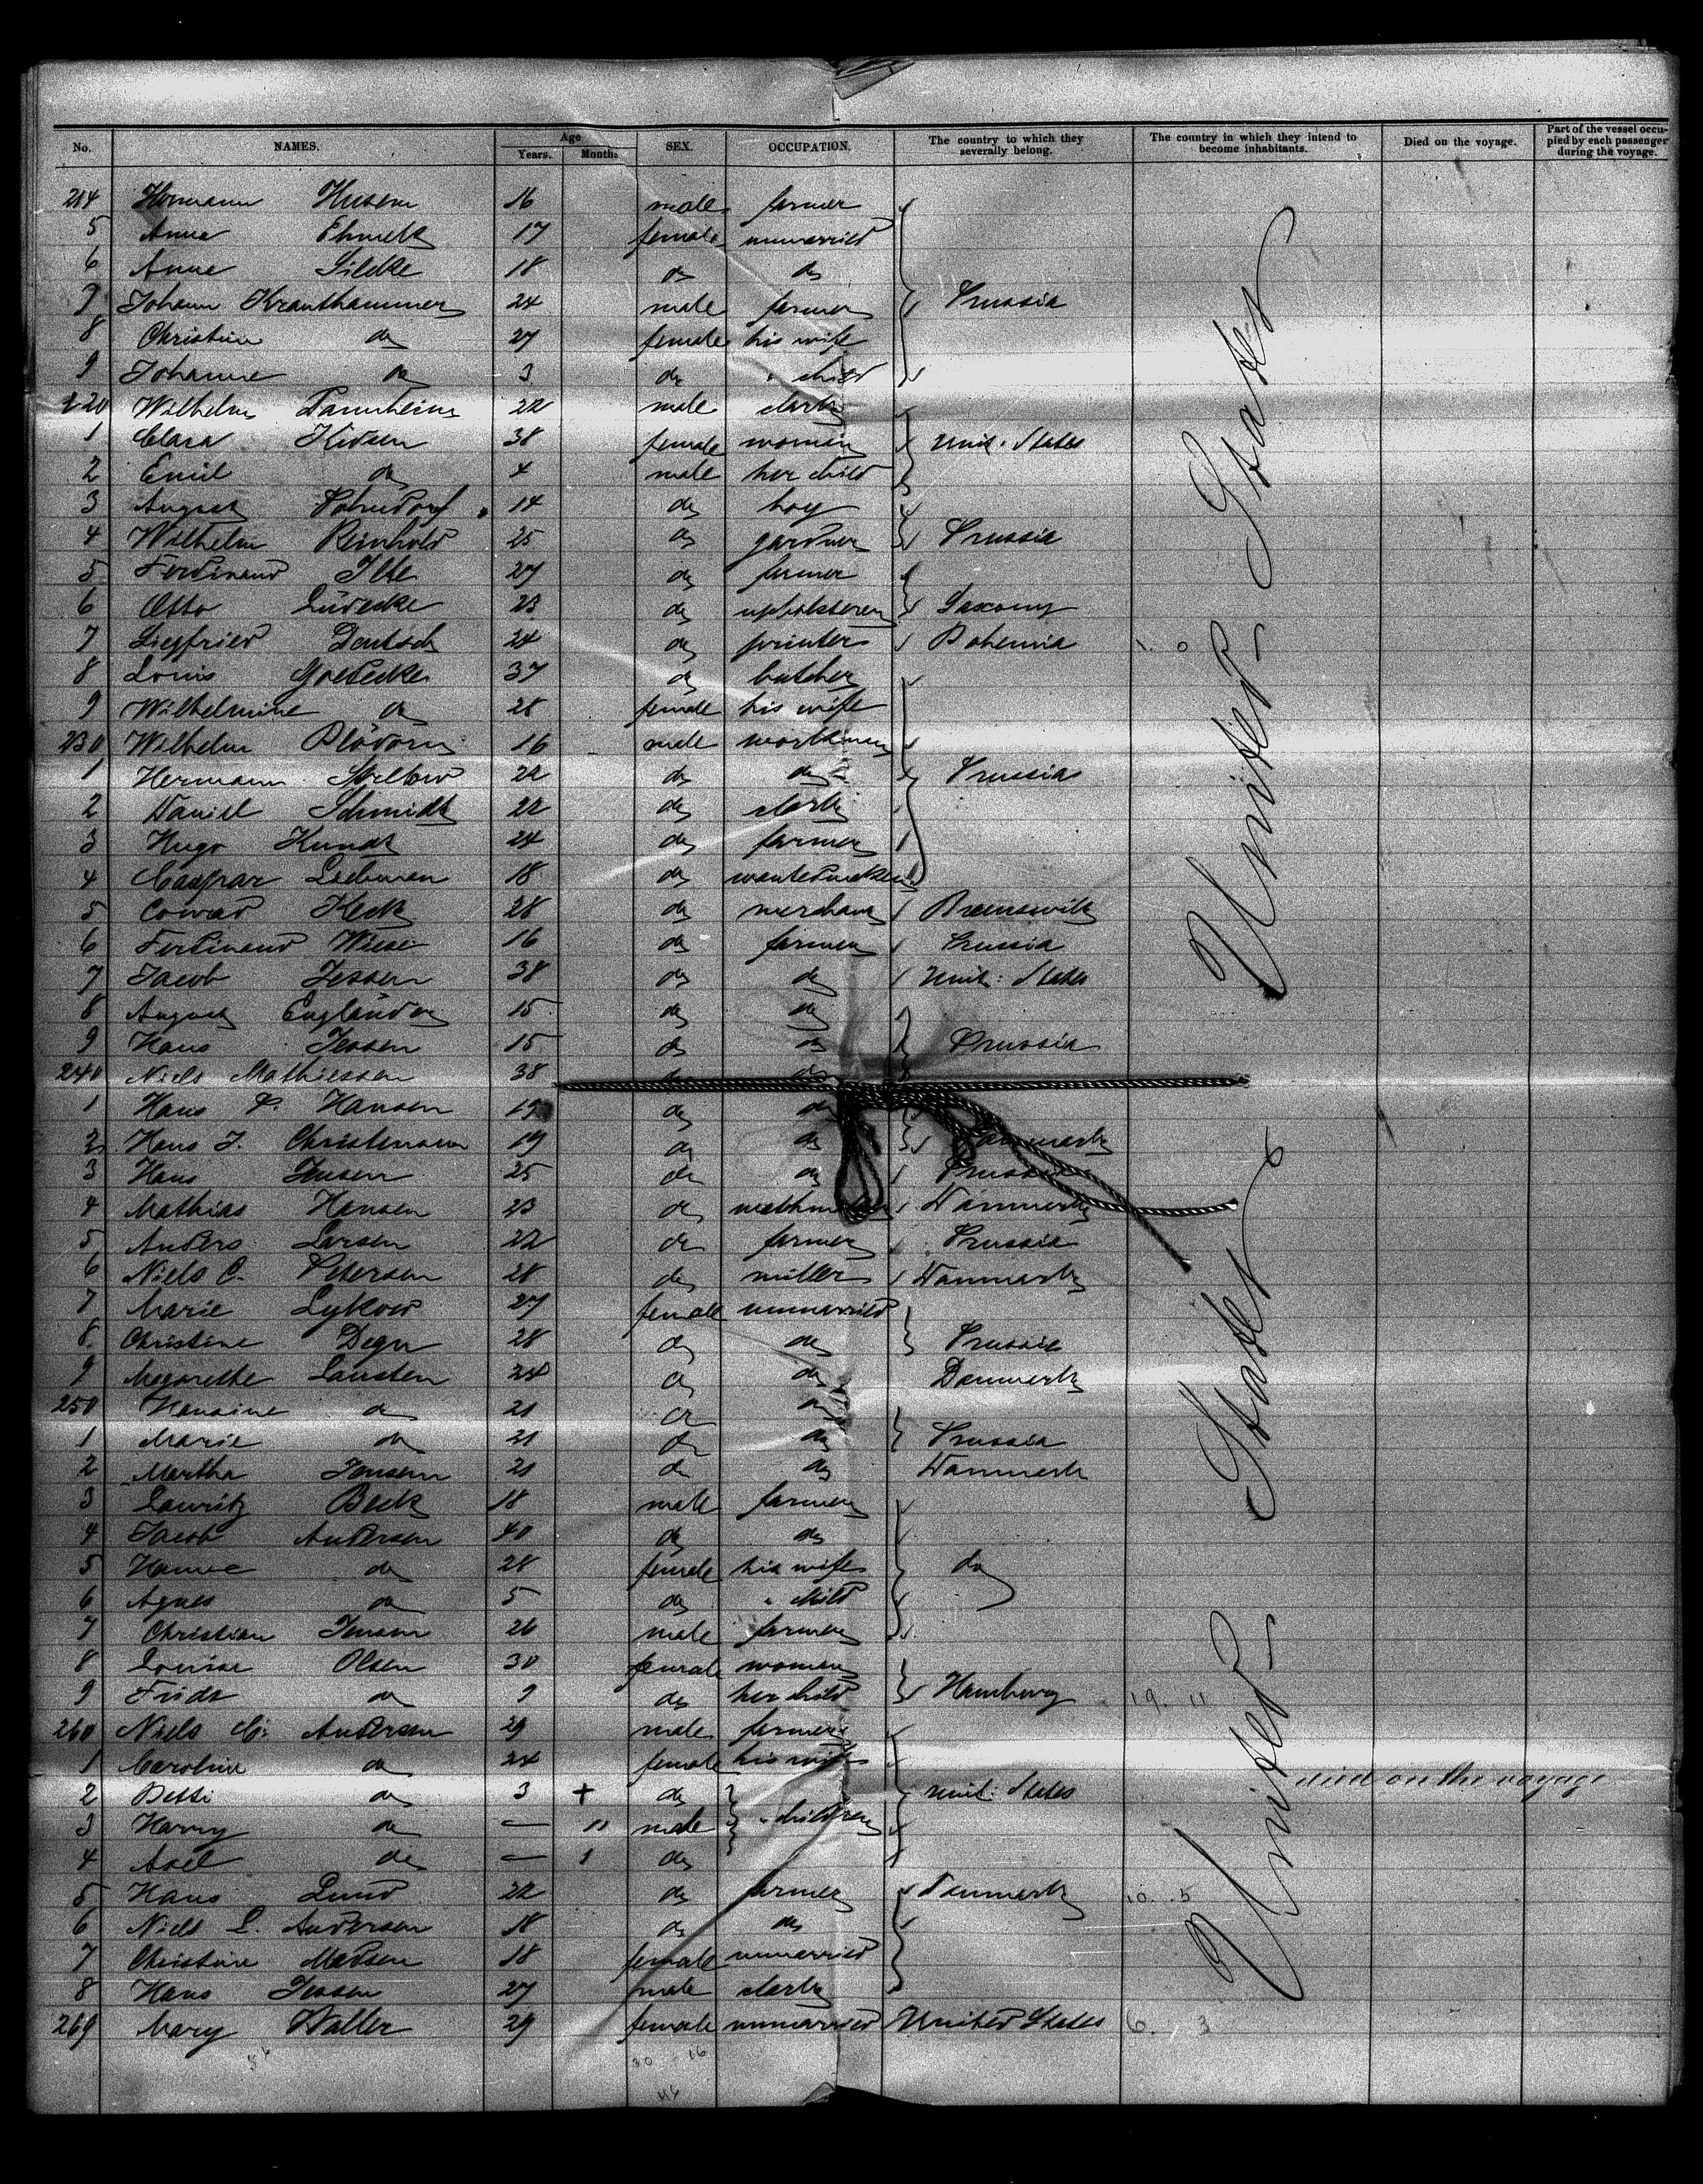 No. NAMES. Age Years. Months SEX. OCCUPATION. The country to which they severally belong. The country in which they intend to become inhabitants. Died on the voyage. Part of the vessel occupied by each passenger during the voyage.
214 Hermann 16 male farmer
5 Anna 17 female unmarried
6 Anna 18 do do
7 Johann Kranthammer 24 male farmer Prussia
8 Christine do 27 female his wife
9 Johanne do 3 do " child
220 Wilhelm Tannheim 22 male clerk
1 Clara 38 female woman Unit. States
2 Emil do 4 male her child
3 August Dohndorf 14 do boy
4 Wilhelm Reinhold 25 do gardner Prussia
5 Ferdinand 27 do farmer
6 Otto Lüdecke 23 do upholsterer Saxony
7 Siegfried Deutsch 24 do printer Bohemia
8 Louis Goedecke 37 do butcher
9 Wilhelmine do 28 female his wife
230 Wilhelm 16 male workman
1 Hermann 22 do do Prussia
2 Daniel Schmidt 22 do clerk
3 Hugo Kundt 24 do farmer
4 Caspar 18 do
5 Conrad Keck 28 do merchant Brunswik
6 Ferdinand Wiese 16 do farmer Prussia
7 Jacob Jessen 38 do do Unit: States
8 August Engländer 15 do do
9 Hans Jessen 15 do do Prussia
240 Niels Mathiessen 38 do do
1 Hans P. Hansen 19 do do
2 Hans J. Christensen 19 do do Danmark
3 Hans Jensen 25 do do Prussia
4 Mathias Hansen 23 do Danmark
5 Anders Larsen 22 do farmer Prussia
6 Niels C. Petersen 28 do miller Danmark
7 Marie Lykow 27 female unmarried
8 Christine Degn 28 do do Prussia
9 Megarethe Lausten 24 do do Denmark
250 Hansine do 21 do do
1 Marie do 21 do do Prussia
2 Martha Jensen 21 do do Danmark
3 Lauritz Beck 18 male farmer
4 Jacob Andersen 40 do do
5 Hanne do 28 female his wife do
6 Agnes do 5 do " child
7 Christian Jensen 26 male farmer
8 Louise Olsen 30 female woman
9 Frida do 9 do her child Hamburg 19. 11
260 Niels C. Andersen 29 male farmer
1 Caroline do 24 female his wife
2 Betti do 3 + do Unit: States died on the voyage
3 Harry do — 11 male " children
4 Axel do — 1 do
5 Hans Lund 22 do farmer Denmark 10. 5
6 Niels L. Andersen 18 do do
7 Christine Madsen 18 female unmarried
8 Hans Jessen 27 male clerk
269 Mary Waller 29 female unmarried United States 6. 3
United States
United States
30 16